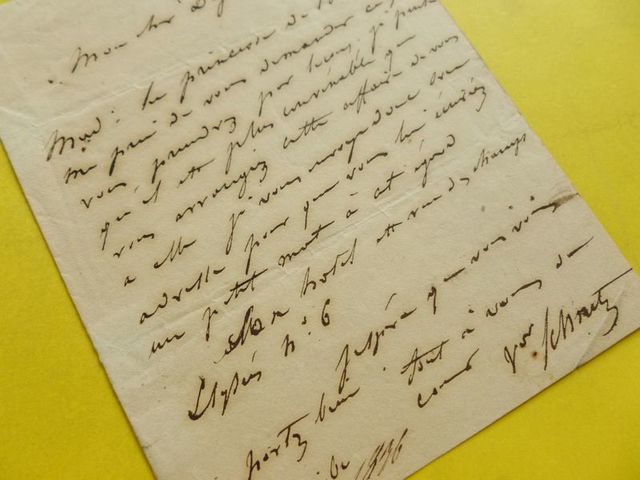 Mon cher
Mad: la princesse de
me prie de vous demander
vous prendrez par leçon, je pense
qu'il est plus convenable que
vous arrangiez cette affaire de vous
a elle je vous envoye donc son
adresse pour que vous lui écriviez
un petit mot à cet égard
hotel est rue des champs
Elysées n: 6
J'espère que vous vous
portez bien. tout à vous de
coeur
1836